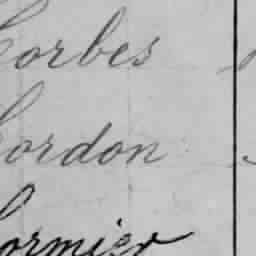 Corbes
Cordon
Cormier